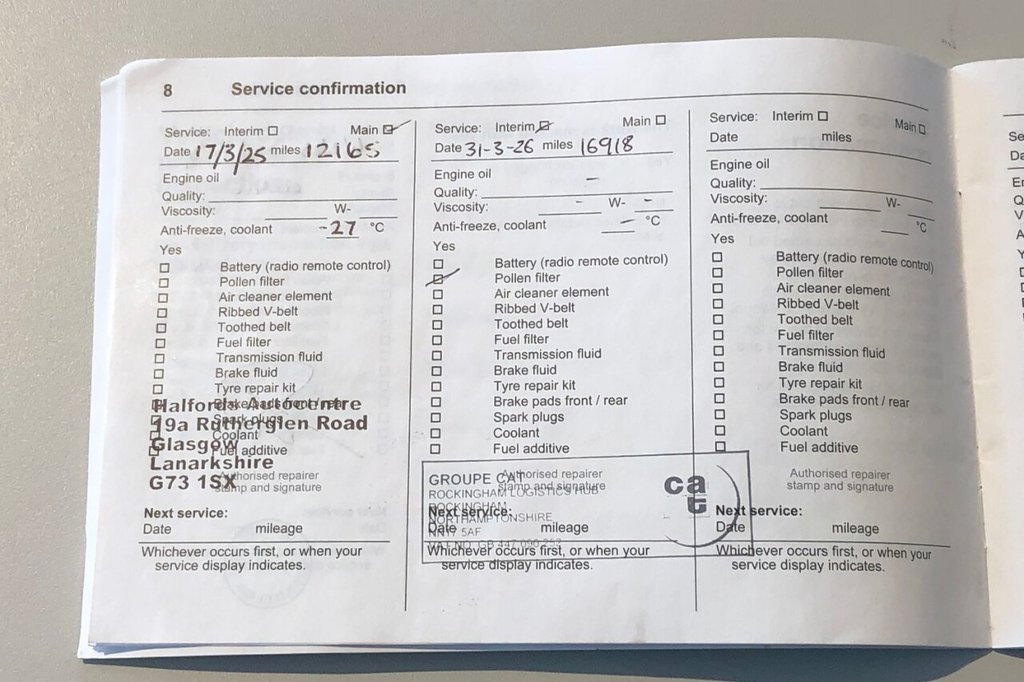 8 Service confirmation
Service: Interim Main
Date 17/3/25 miles 12165
Engine oil
Quality:
Viscosity: W-
Anti-freeze, coolant -27 °C
Yes
Battery (radio remote control)
Pollen filter
Air cleaner element
Ribbed V-belt
Toothed belt
Fuel filter
Transmission fluid
Brake fluid
Tyre repair kit
Brake pads front / rear
Spark plugs
Coolant
Fuel additive
Halfords Autocentre
19a Rutherglen Road
Glasgow
Lanarkshire
G73 1SX
Authorised repairer
stamp and signature
Next service:
Date mileage
Whichever occurs first, or when your
service display indicates.
Service: Interim Main
Date 31-3-26 miles 16918
Engine oil -
Quality:
Viscosity: - W- -
Anti-freeze, coolant - °C
Yes
Battery (radio remote control)
Pollen filter
Air cleaner element
Ribbed V-belt
Toothed belt
Fuel filter
Transmission fluid
Brake fluid
Tyre repair kit
Brake pads front / rear
Spark plugs
Coolant
Fuel additive
Authorised repairer
stamp and signature
GROUPE CAT
ROCKINGHAM LOGISTICS HUB
ROCKINGHAM
NORTHAMPTONSHIRE
NN17 5AF
VAT NO. GB 447 090 252
cat
Next service:
Date mileage
Whichever occurs first, or when your
service display indicates.
Service: Interim Main
Date miles
Engine oil
Quality:
Viscosity: W-
Anti-freeze, coolant °C
Yes
Battery (radio remote control)
Pollen filter
Air cleaner element
Ribbed V-belt
Toothed belt
Fuel filter
Transmission fluid
Brake fluid
Tyre repair kit
Brake pads front / rear
Spark plugs
Coolant
Fuel additive
Authorised repairer
stamp and signature
Next service:
Date mileage
Whichever occurs first, or when your
service display indicates.